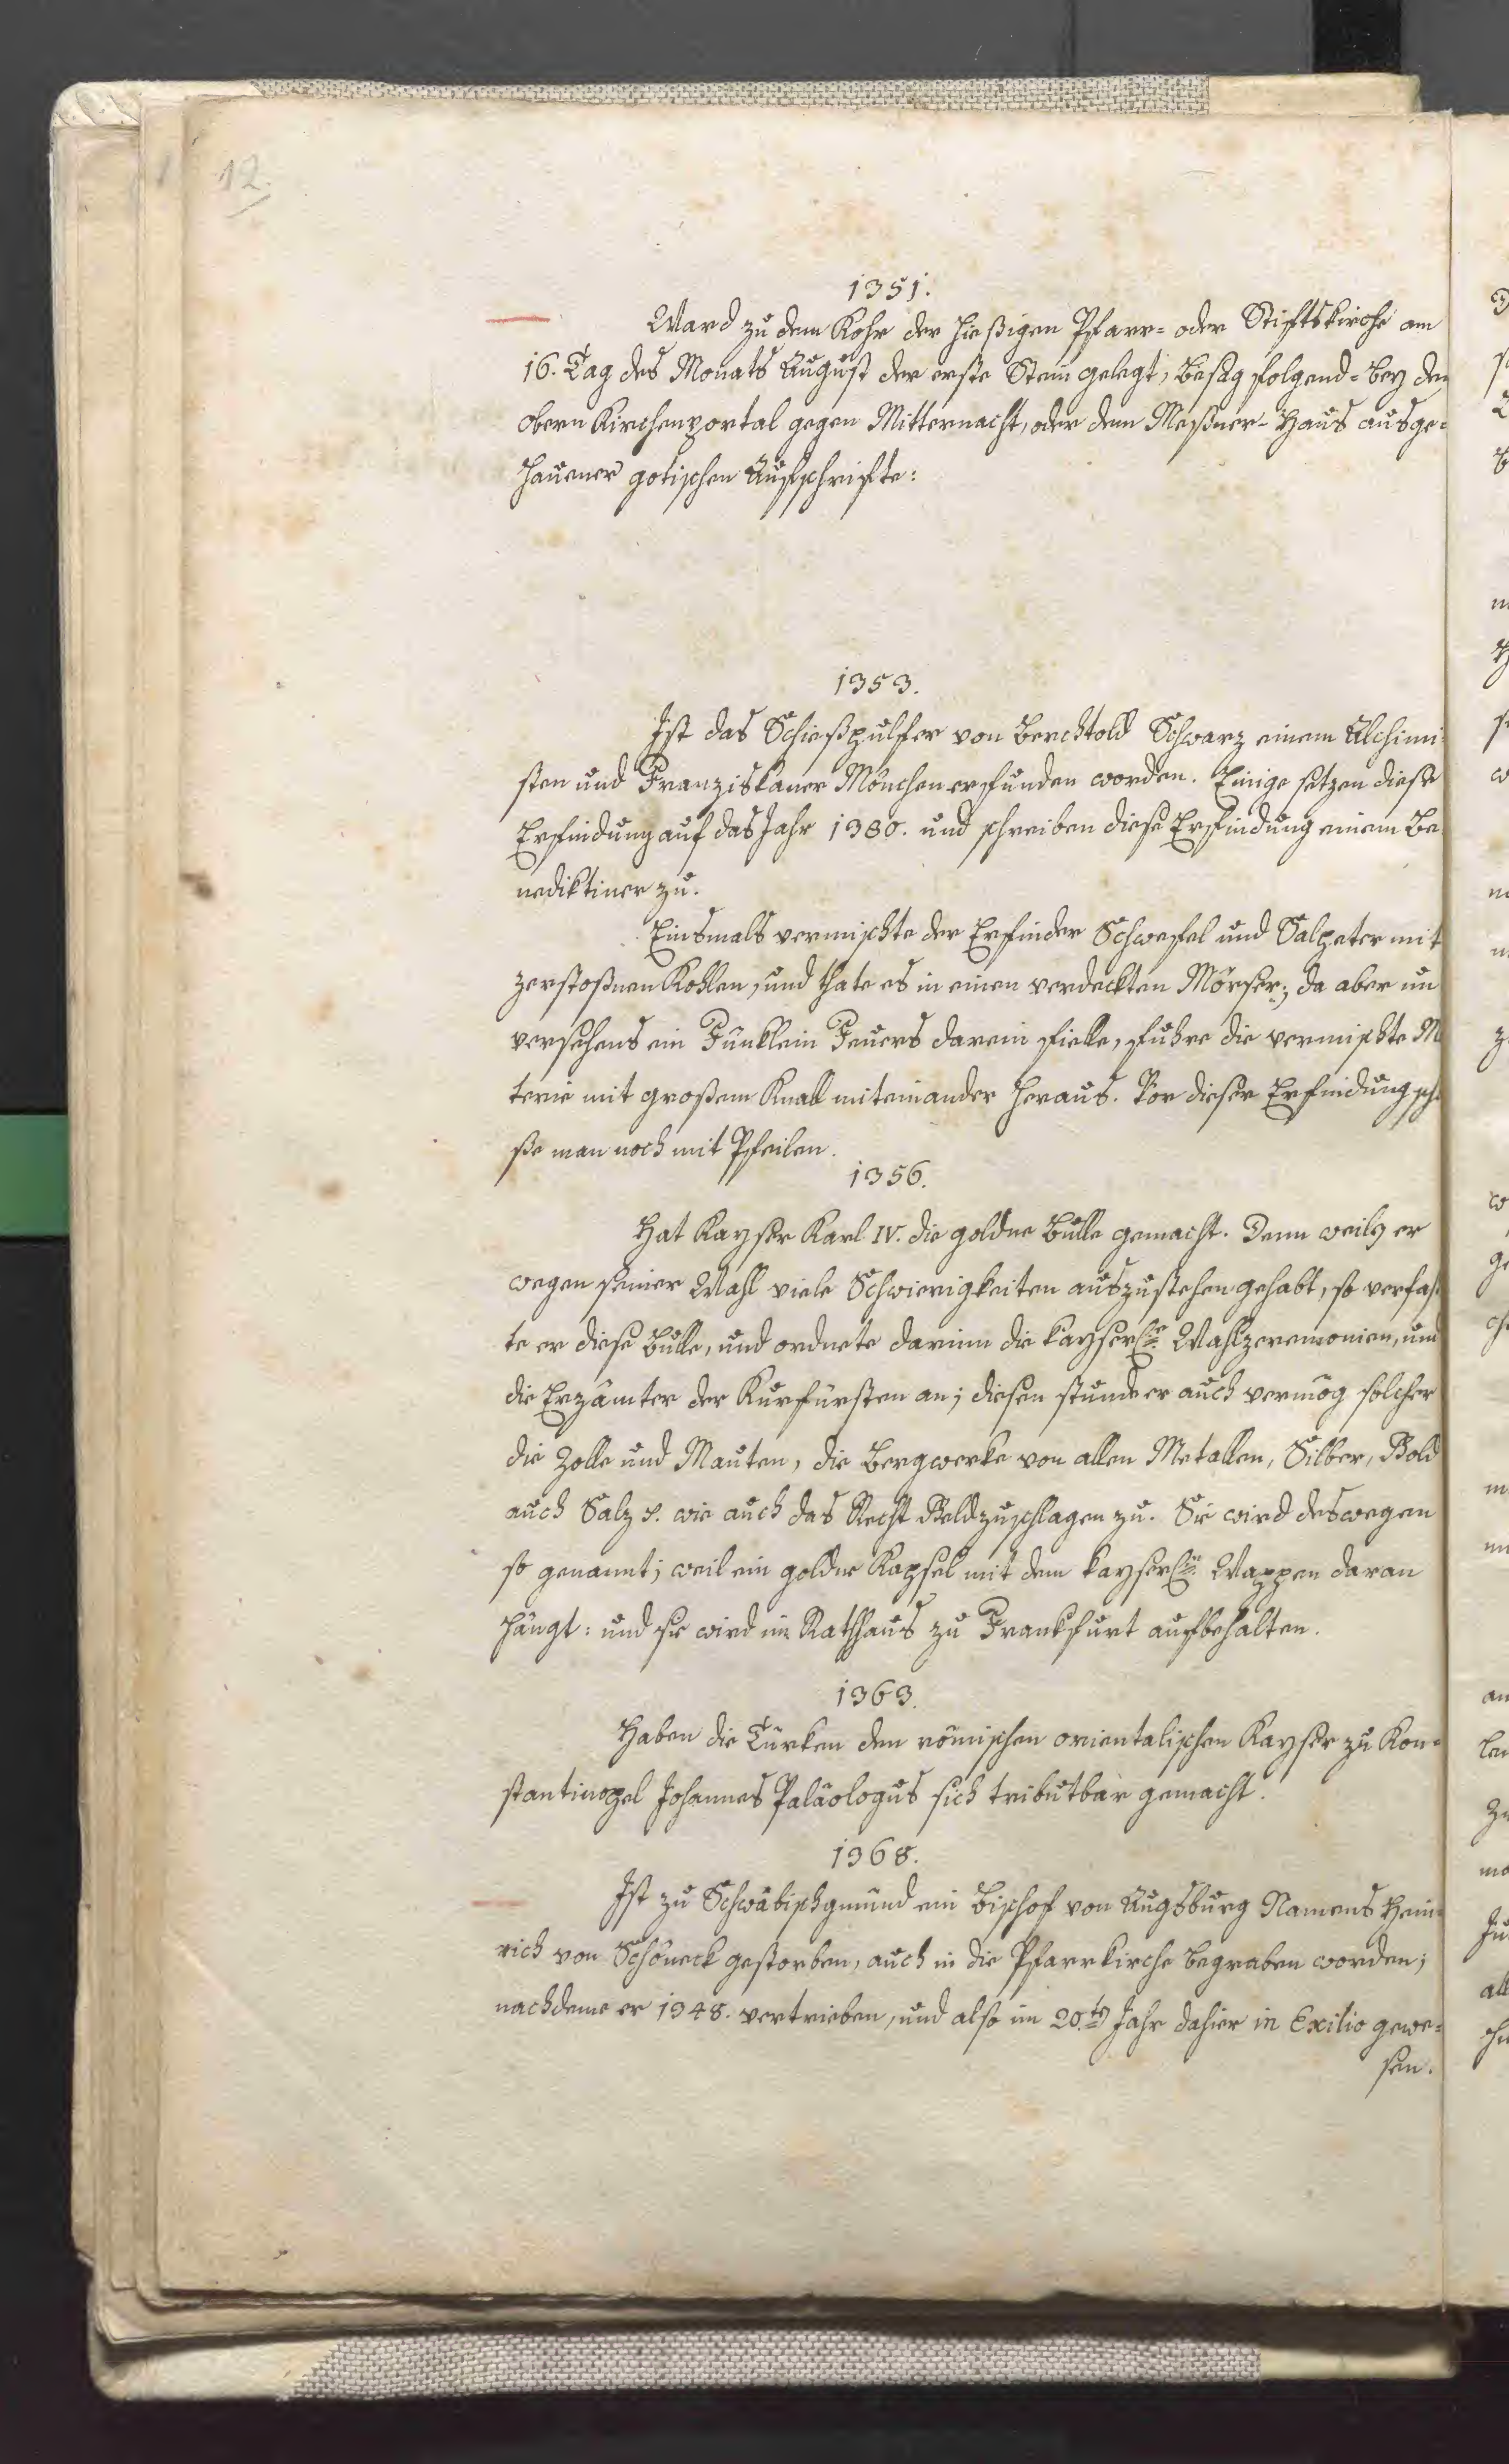 12.
1351.
Ward zu dem Kohr der hießigen Pfarr= oder Stiftskirche am
16. Tag des Monats August der erste Stein gelegt, besag folgend= bey dem
obern Kirchenportal gegen Mitternacht, oder dem Meßner=Haus ausge=
hauener gotischen Aufschrifte:
1353.
Ist das Schießpulfer von Berchtold Schwarz einem Alchimi=
sten und Franziskaner Mönchen erfunden worden. Einige setzen diese
Erfindung auf das Jahr 1380. und schreiben diese Erfindung einem Be
nediktiner zu.
Einsmals vermischte der Erfinder Schwefel und Salpeter mit
zerstoßnen Kohlen, und thate es in einen verdeckten Mörser; da aber un
versehens ein Fünklein Feuers darein fielle, fuhre die vermischte M
terie mit großem Knall miteinander heraus. Vor dieser Erfindung sch
ße man noch mit Pfeilen.
1356.
Hat Kayser Karl IV. die goldne Bulle gemacht. Denn weil er
wegen seiner Wahl viele Schwierigkeiten auszustehen gehabt, so verfaß
te er diese Bulle, und ordnete darinn die kayserl.e Wahlzeremonien, und
die Erzämter der Kurfürsten an; diesen stunde er auch vermög solcher
die Zolle und Mauten, die Bergwerke von allen Metallen, Silber, Gold
auch Salz wie auch das Recht Geldzuschlagen zu. Sie wird deswegen
so genannt; weil ein goldne Kapsel mit dem kayserl.en Wappen daran
hängt: und sie wird im Rathhaus zu Frankfurt aufbehalten.
1363.
Haben die Türken den römischen orientalischen Kayser zu Kon=
stantinopel Johannes Paläologus sich tributbar gemacht.
1368.
Ist zu Schwäbischgmünd ein Bischof von Augsburg Namens Hein=
rich von Schöneck gestorben, auch in die Pfarrkirche begraben worden;
nachdeme er 1348. vertrieben, und also im 20.ten Jahr dahier in Exilio gewe=
sen.